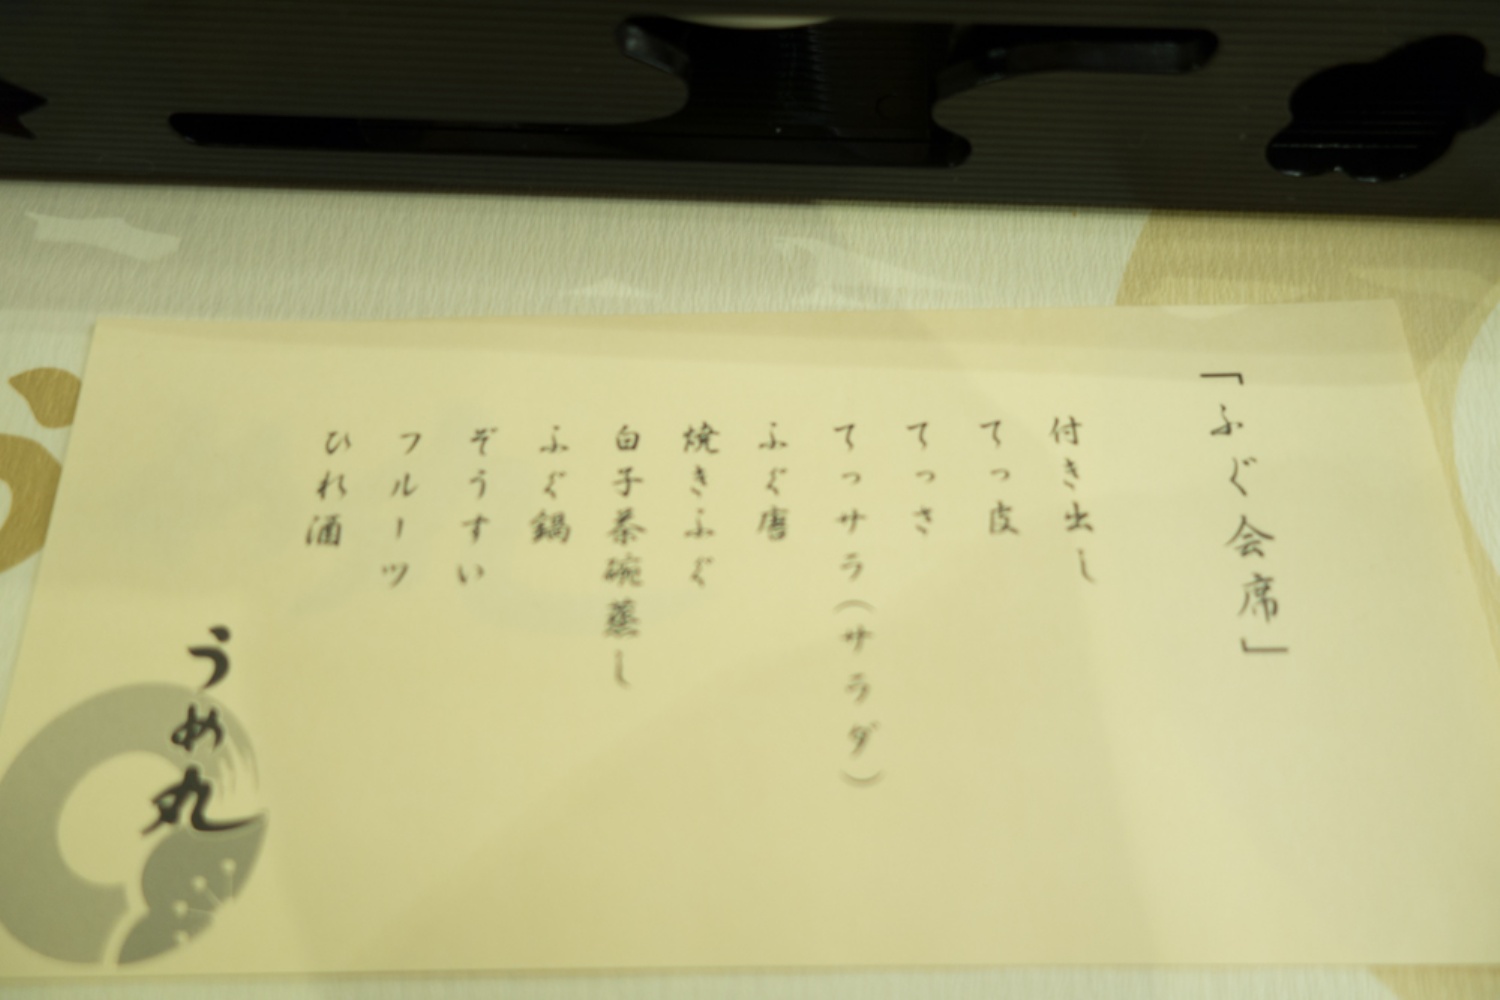 「ふぐ会席」
付き出し
てっ皮
てっさ
てっサラ(サラダ)
ふぐ唐
焼きふぐ
白子茶碗蒸し
ふぐ鍋
ぞうすい
フルーツ
ひれ酒
うめ丸